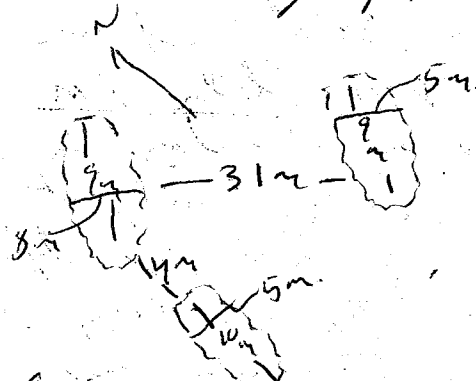 N
5m.
9
m
9m
31m
8m
4m
5m.
10m